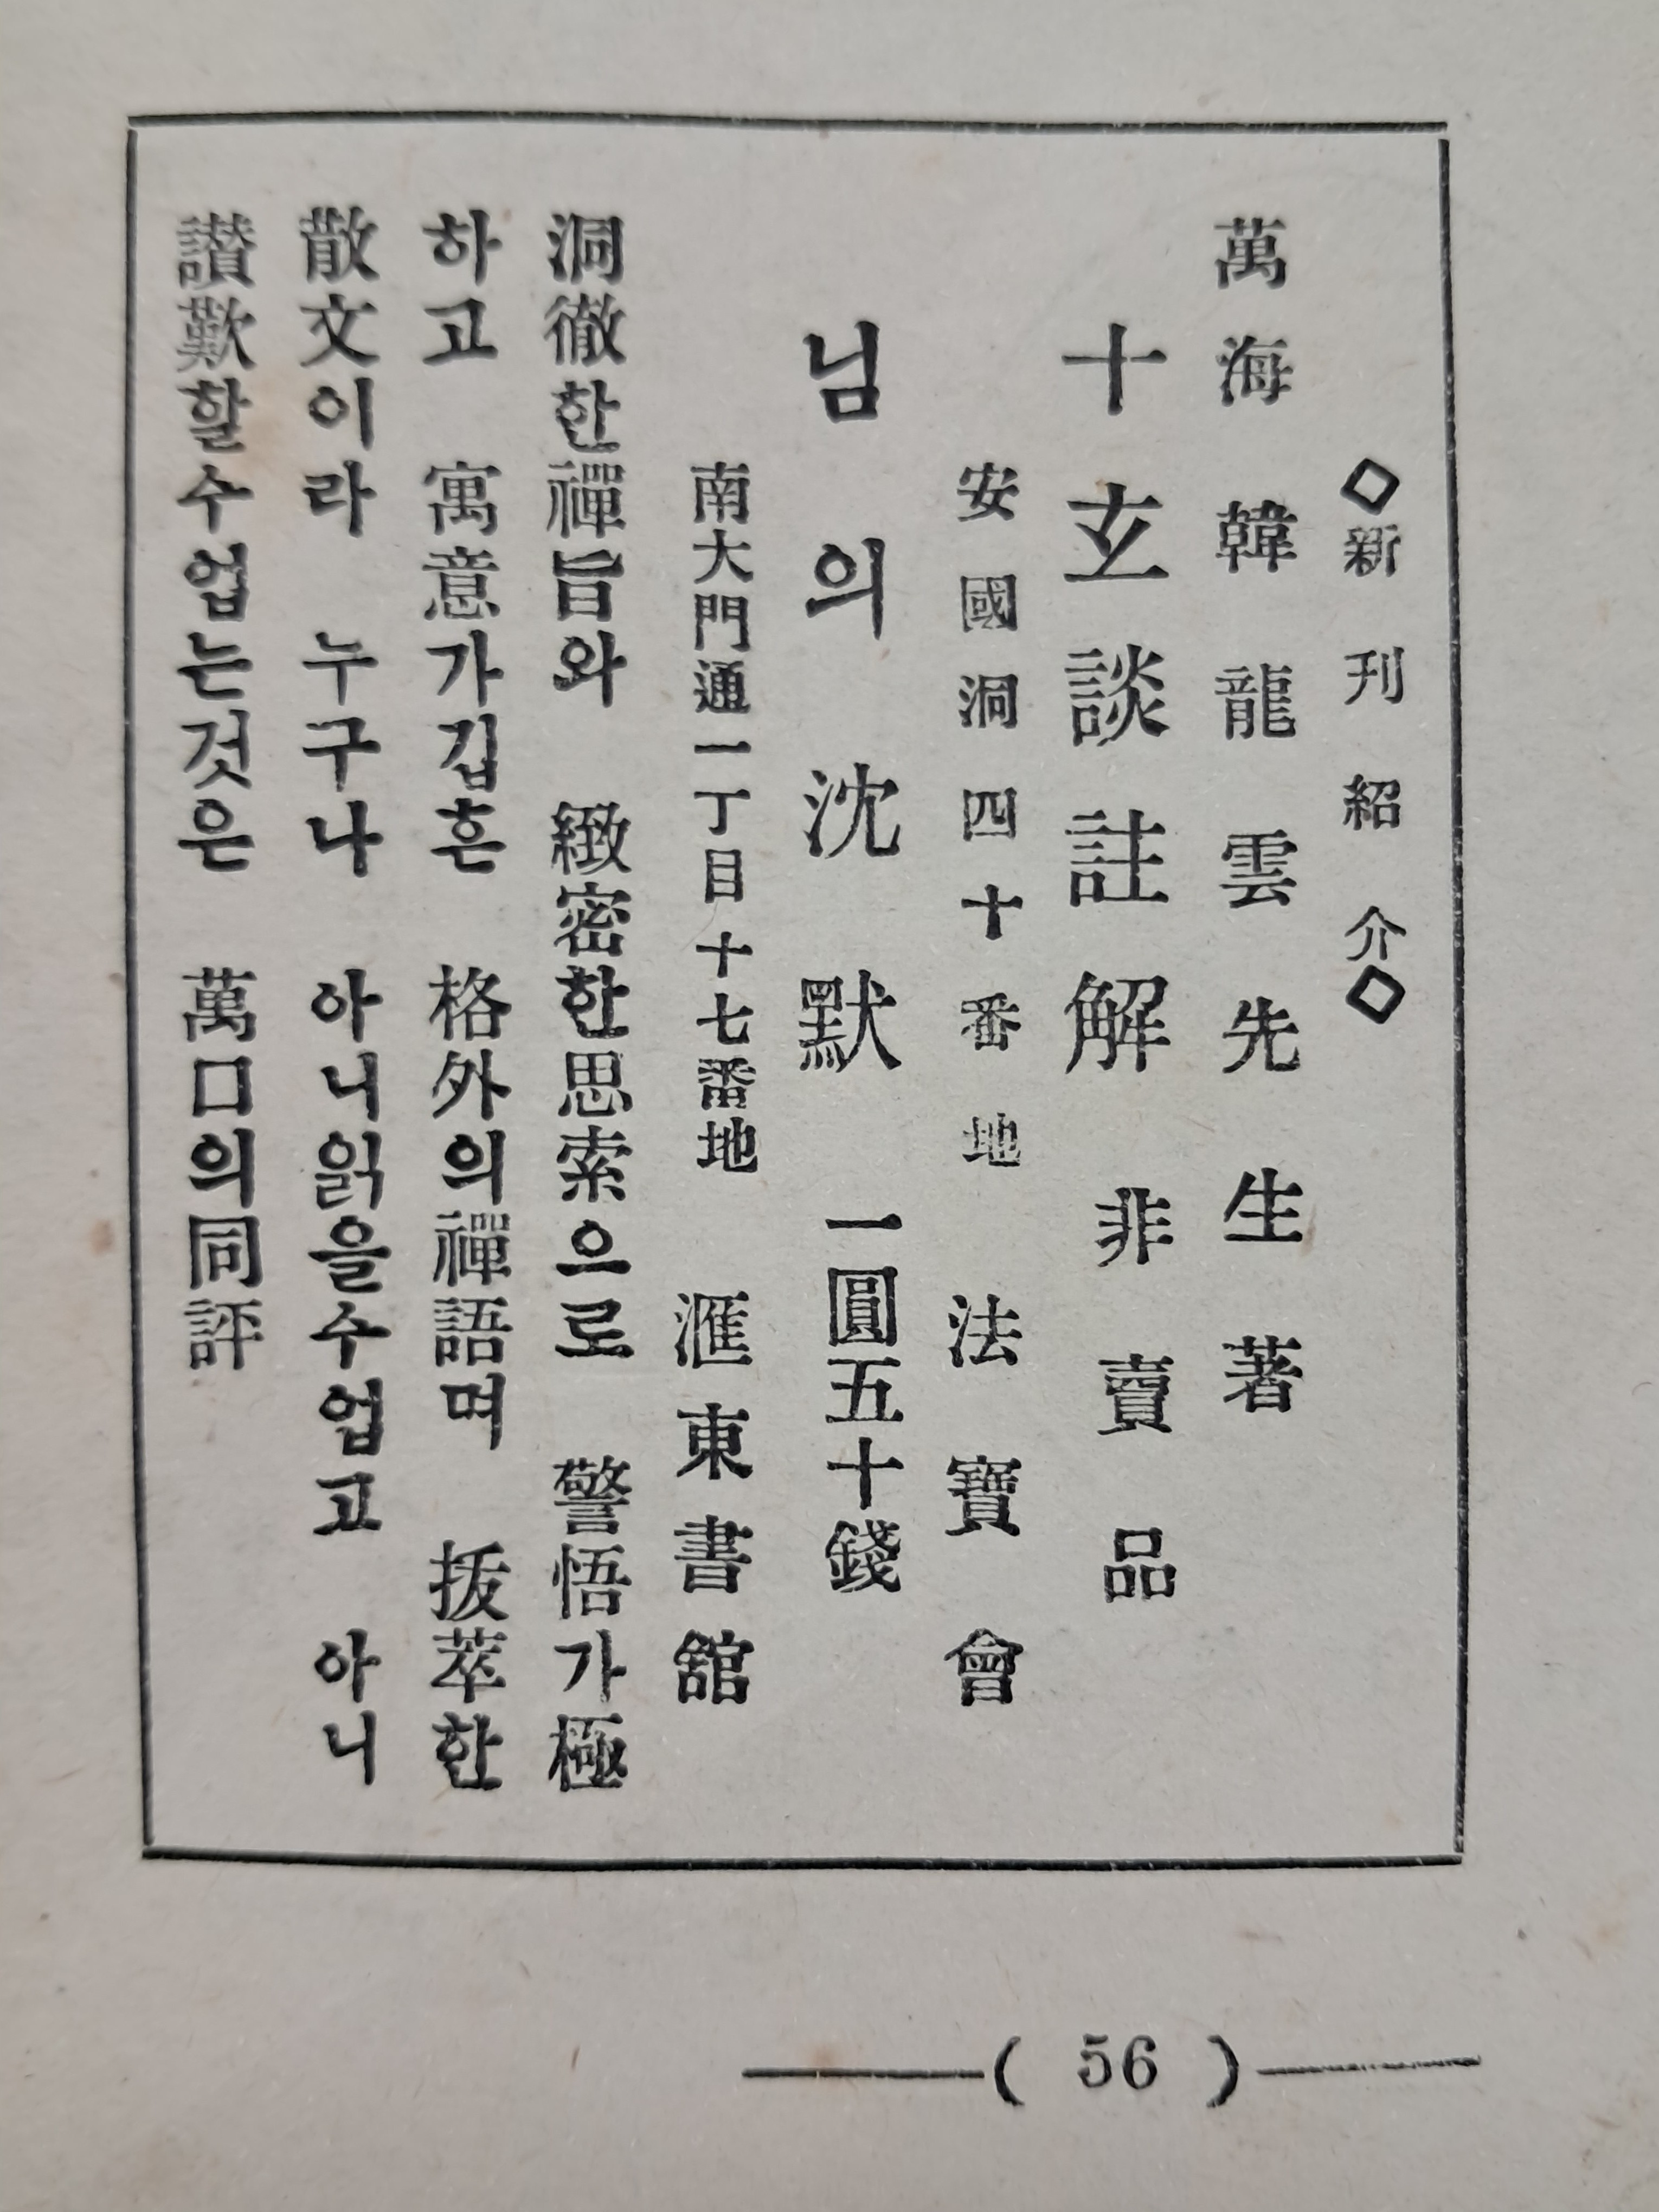 ◇新刊紹介◇
萬海韓龍雲先生著
十玄談註解 非賣品
安國洞四十番地 法寶會
님의沈默 一圓五十錢
南大門通一丁目十七番地 滙東書舘
洞徹한禪旨와 緻密한思索으로 警悟가極
하고 寓意가깁흔 格外의禪語며 拔萃한
散文이라 누구나 아니읽을수업고 아니
讃歎할수업는것은 萬口의同評
( 56 )